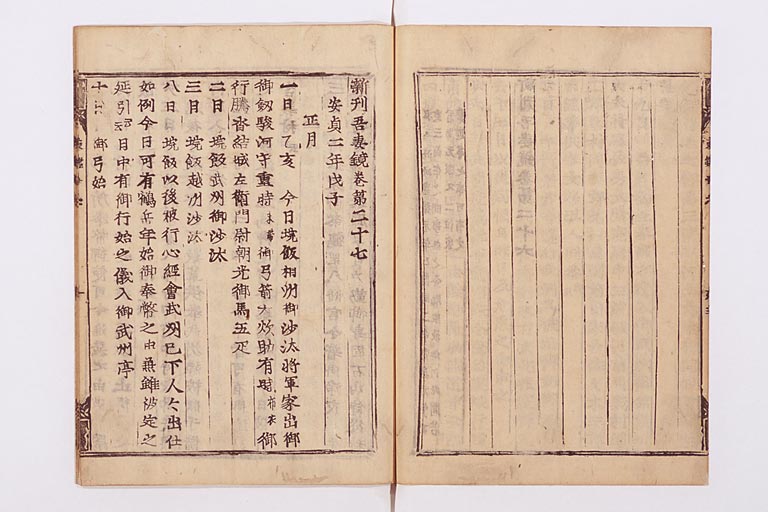 新刊吾妻鏡卷第二十七
安貞二年戊子
正月
一日 乙亥 今日垸飯相州御沙汰將軍家出御
御劒駿河守重時 御弓箭大炊助有時 布衣 御
行騰沓結城左衛門尉朝光御馬五疋
二日 垸飯武州御沙汰
三日 垸飯越州沙汰
八日 垸飯以後被行心經會武州已下人々出仕
如例今日可有鶴岳年始御奉幣之由兼雖被定之
延引 日中有御行始之儀入御武州亭
十 御弓始